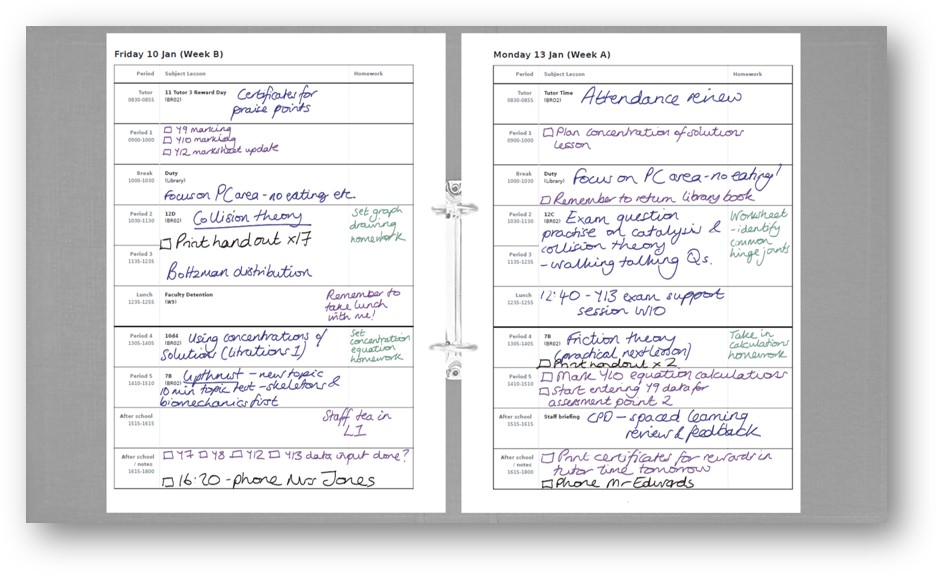 Friday 10 Jan (Week B)
Period Subject Lesson Homework
Tutor 11 Tutor 3 Reward Day Certificates for
0830-0855 (BR02) praise points
Period 1 Y9 marking
0900-1000 Y10 marking
Y12 marksheet update
Break Duty
1000-1030 (Library)
Focus on PC area - no eating etc.
Period 2 12D Collision theory Set graph
1030-1130 (BR02) drawing
Print handout x17 homework
Period 3
1135-1235 Boltzman distribution
Lunch Faculty Detention Remember to
1235-1255 (W9) take lunch
with me!
Period 4 10d4 Using concentrations of Set
1305-1405 (BR02) concentration
Solutions (titrations 1) equation
homework
Period 5 7B Upthrust - new topic
1410-1510 (BR02) 10 min topic test - skeletons &
biomechanics first
After school Staff tea in
1515-1615 L1
After school Y7 Y8 Y12 Y13 data input done?
/ notes
1615-1800 16:20 - phone Mrs Jones
Monday 13 Jan (Week A)
Period Subject Lesson Homework
Tutor Tutor Time Attendance review
0830-0855 (BR02)
Period 1 Plan concentration of solutions
0900-1000 lesson
Break Duty Focus on PC area - no eating!
1000-1030 (Library)
Remember to return library book
Period 2 12C Exam question Worksheet
1030-1130 (BR02) practise on catalysis & - identify
collision theory common
Period 3 - walking talking Qs. hinge joints
1135-1235
Lunch 12:40 - Y13 exam support
1235-1255 session W10
Period 4 7B Friction theory Take in
1305-1405 (BR02) (practical next lesson) calculations
Print handout x 2 homework
Period 5 Mark Y10 equation calculations
1410-1510 Start entering Y9 data for
assessment point 2
After school Staff briefing CPD - spaced learning
1515-1615 review & feedback
After school Print certificates for rewards in
/ notes tutor time tomorrow
1615-1800 Phone Mr Edwards